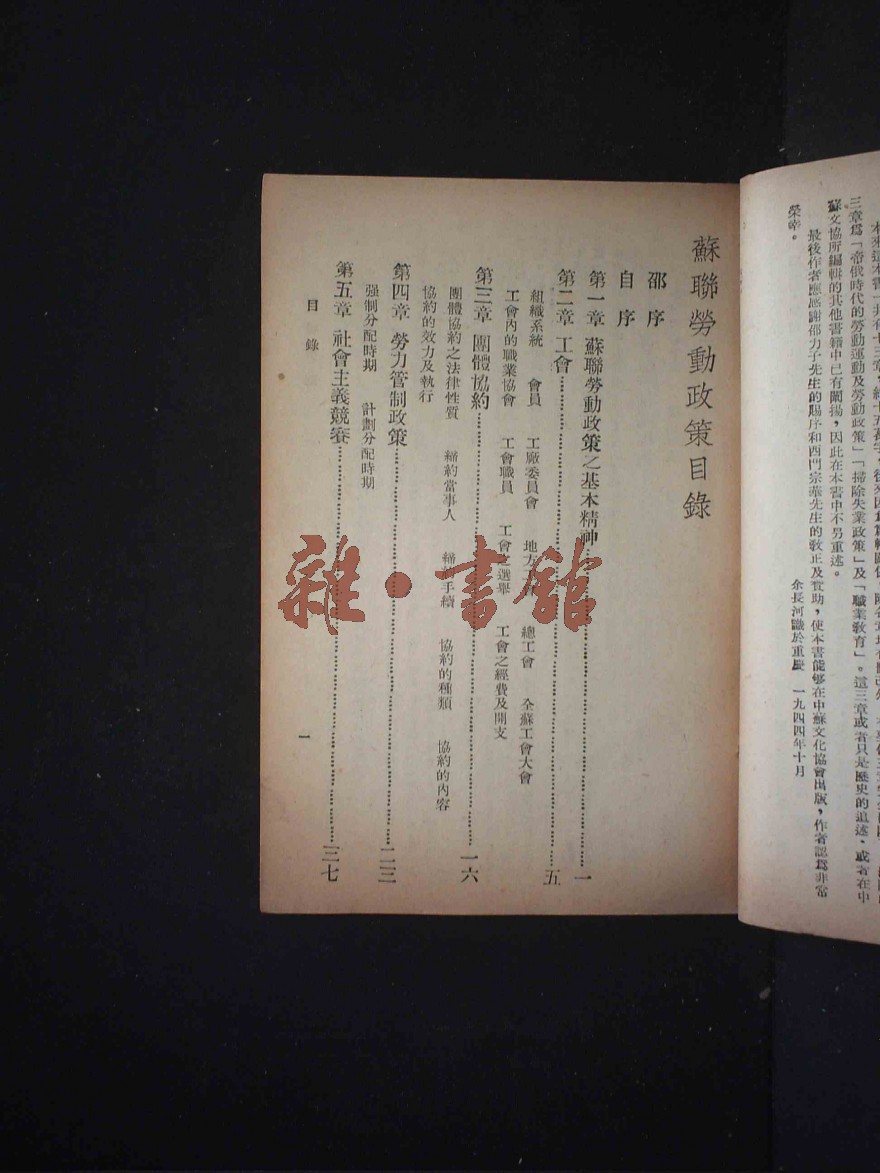 三章爲「帝俄時代的勞動運動及勞動政策」「掃除失業政策」及「職業教育」。這三章或者只是歷史的追述,或者在中
蘇文協所編輯的其他書籍中已有闡揚,因此在本書中不另重述。
最後作者應感謝邵力子先生的賜序和西門宗華先生的教正及贊助,使本書能够在中蘇文化協會出版,作者認爲非常
榮幸。
余長河識於重慶 一九四四年十月
蘇聯勞動政策目錄
邵序
自序
第一章 蘇聯勞動政策之基本精神……一
第二章 工會……五
組織系統 會員 工廠委員會 地方 總工會 全蘇工會大會
工會內的職業協會 工會職員 工會之選舉 工會之經費及開支
第三章 團體協約……一六
團體協約之法律性質 締約當事人 締約手續 協約的種類 協約的內容
協約的效力及執行
第四章 勞力管制政策……二三
强制分配時期 計劃分配時期
第五章 社會主義競賽……三七
目錄
一
雜·書館